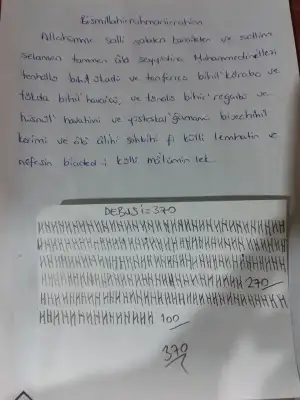 Bismillahirrahmanirrahim
Allahümme salli salaten kamileten ve sellim
selamen tammen âlâ seyyidina Muhammedinellezi
tenhallü bihil ukadü ve tenfericü bihil kürabü ve
tükda bihil havaicü, ve tünalü bihir regaibü ve
hüsnül havatimi ve yüsteskal ğamamü bivechihil
kerimi ve âlâ âlihi sahbihi fi külli lemhatin ve
nefesin biadedi külli mâlumin lek.
DEBUSİ=370
270
100
370